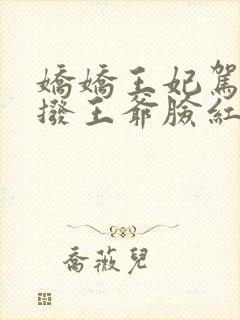 嬌嬌王妃駕
撥王爺臉紅
喬薇兒